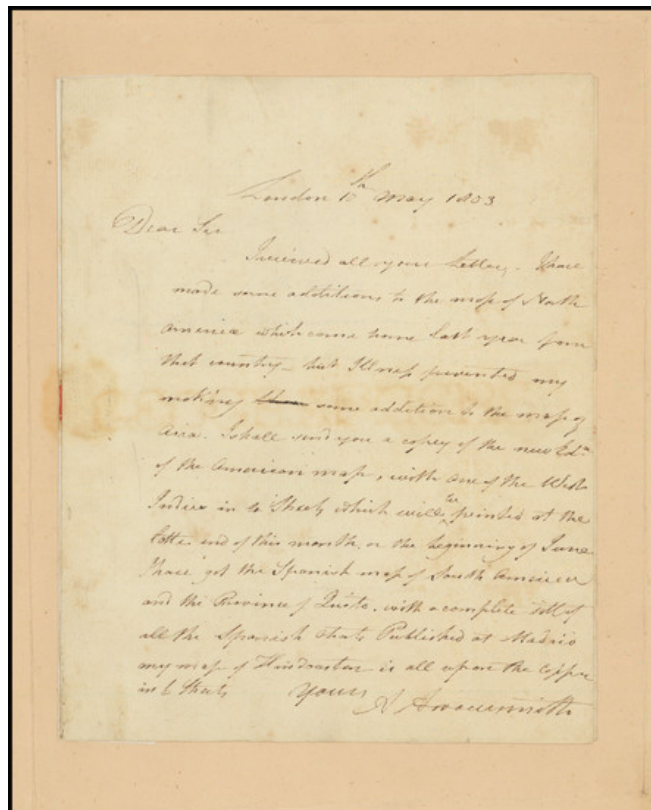 London 10th May 1803
Dear Sir
I received all your Letters. I have
made some additions to the map of North
America which came home last year from
that country – but Illness prevented my
making some addition to the map of
Asia. I shall send you a copy of the new Edn
of the American map, with one of the West
Indies in 4 Sheets which will be printed at the
latter end of this month, or the beginning of June
I have got the Spanish map of South America
and the Province of Quito, with a complete sett of
all the Spanish Charts Published at Madrid
my map of Hindoostan is all upon the Copper
in 6 Sheets Yours
A Arrowsmith